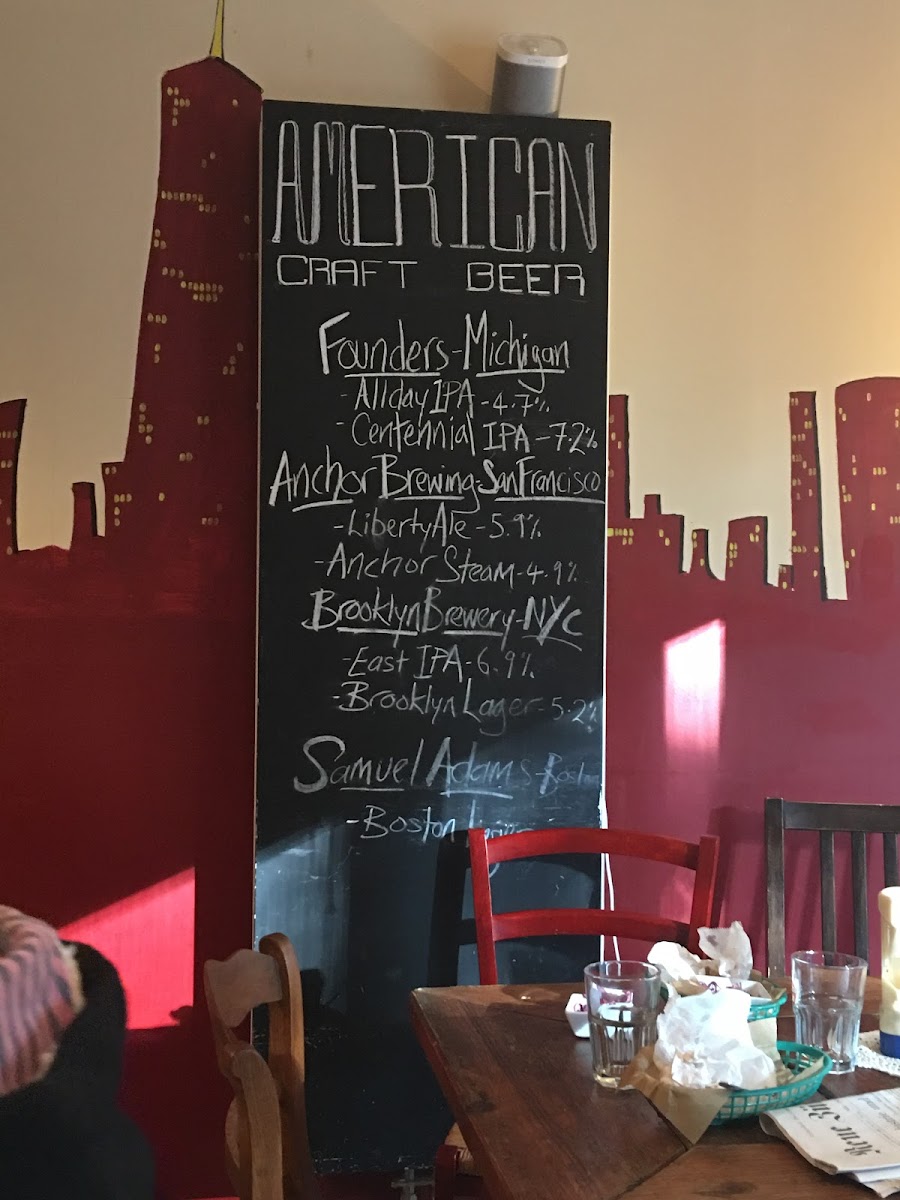 AMERICAN
CRAFT BEER
Founders-Michigan
-Allday IPA-4.7%
-Centennial IPA-7.2%
Anchor Brewing-San Francisco
-Liberty Ale-5.9%
-Anchor Steam-4.9%
Brooklyn Brewery-NYC
-East IPA-6.9%
-Brooklyn Lager-5.2%
Samuel Adams-Boston
-Boston Lager